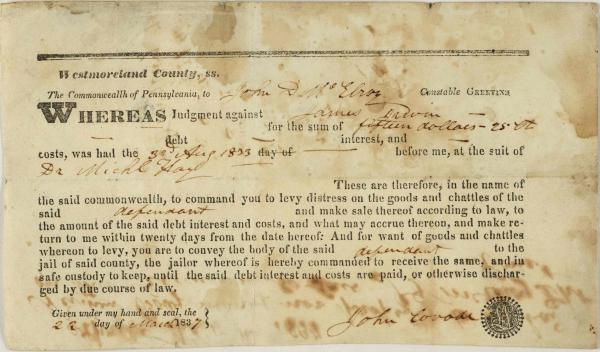 Westmoreland County, ss.
The Commonwealth of Pennsylvania, to John D. McElroy Constable GREETING
WHEREAS Judgment against James
for the sum of fifteen dollars - 25 Ct
debt interest, and
costs, was had the 22d Aug 1833 day of before me, at the suit of
Dr Michl
These are therefore, in the name of
the said commonwealth, to command you to levy distress on the goods and chattles of the
said defendant and make sale thereof according to law, to
the amount of the said debt interest and costs, and what may accrue thereon, and make re-
turn to me within twenty days from the date hereof: And for want of goods and chattles
whereon to levy, you are to convey the body of the said defendant to the
jail of said county, the jailor whereof is hereby commanded to receive the same, and in
safe custody to keep, until the said debt interest and costs are paid, or otherwise dischar-
ged by due course of law.
Given under my hand and seal, the
22 day of March 1837
John Covode